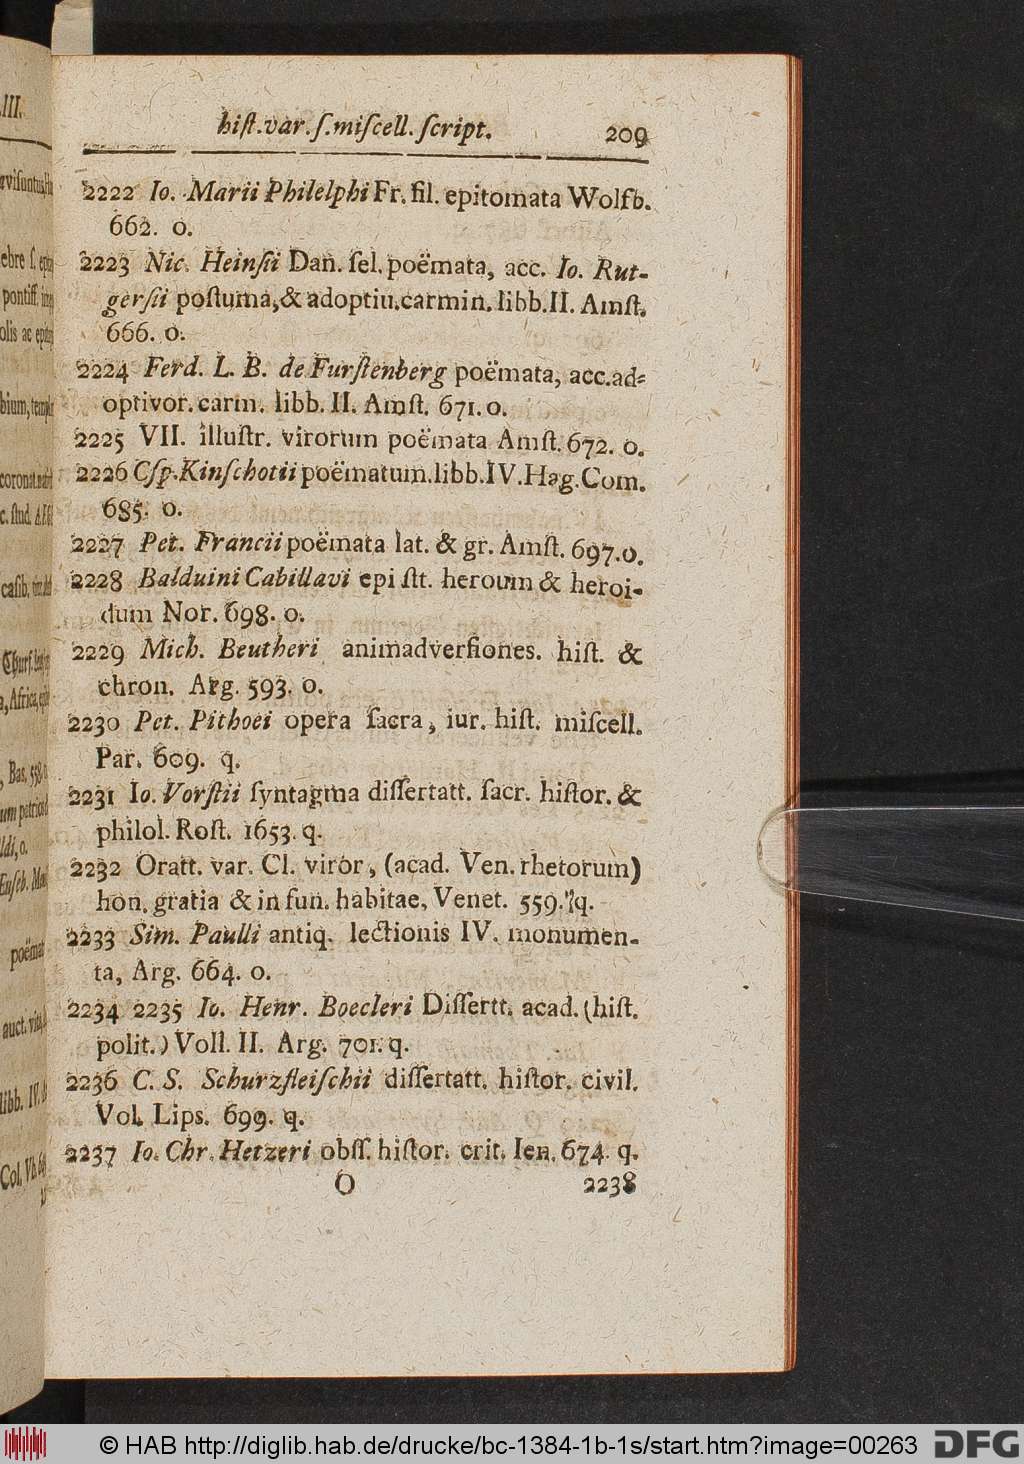 III.
hiſt.var.ſ.miſcell.ſcript. 209
2222 Io. Marii Philelphi Fr. fil. epitomata Wolfb.
662. o.
2223 Nic. Heinſii Dan. ſel. poëmata, acc. Io. Rut-
gerſii poſtuma,& adoptiu.carmin. libb.II. Amſt.
666. o.
2224 Ferd. L. B. de Furſtenberg poëmata, acc.ad-
optivor.carm. libb. II. Amſt. 671.o.
2225 VII. illuſtr. virorum poëmata Amſt.672. o.
2226 Cſp.Kinſchotii poëmatum.libb.IV.Hag.Com.
685. o.
2227 Pet. Francii poëmata lat. & gr. Amſt. 697.o.
2228 Balduini Cabillavi epiſtt. heroum & heroi-
dum Nor. 698. o.
2229 Mich. Beutheri animadverſiones. hiſt. &
chron. Arg. 593. o.
2230 Pet. Pithoei opera ſacra, iur. hiſt. miſcell.
Par. 609. q.
2231 Io. Vorſtii ſyntagma diſſertatt. ſacr. hiſtor. &
philol. Roſt. 1653. q.
2232 Oratt. var. Cl. viror, (acad. Ven. rhetorum)
hon. gratia & in fun. habitae, Venet. 559. q.
2233 Sim. Paulli antiq. lectionis IV. monumen-
ta, Arg. 664. o.
2234 2235 Io. Henr. Boecleri Diſſertt. acad. (hiſt.
polit.) Voll. II. Arg. 701. q.
2236 C. S. Schurzfleiſchii diſſertatt. hiſtor. civil.
Vol. Lips. 699. q.
2237 Io. Chr. Hetzeri obſſ. hiſtor. crit. Ien. 674. q.
O 2238
© HAB http://diglib.hab.de/drucke/bc-1384-1b-1s/start.htm?image=00263 DFG